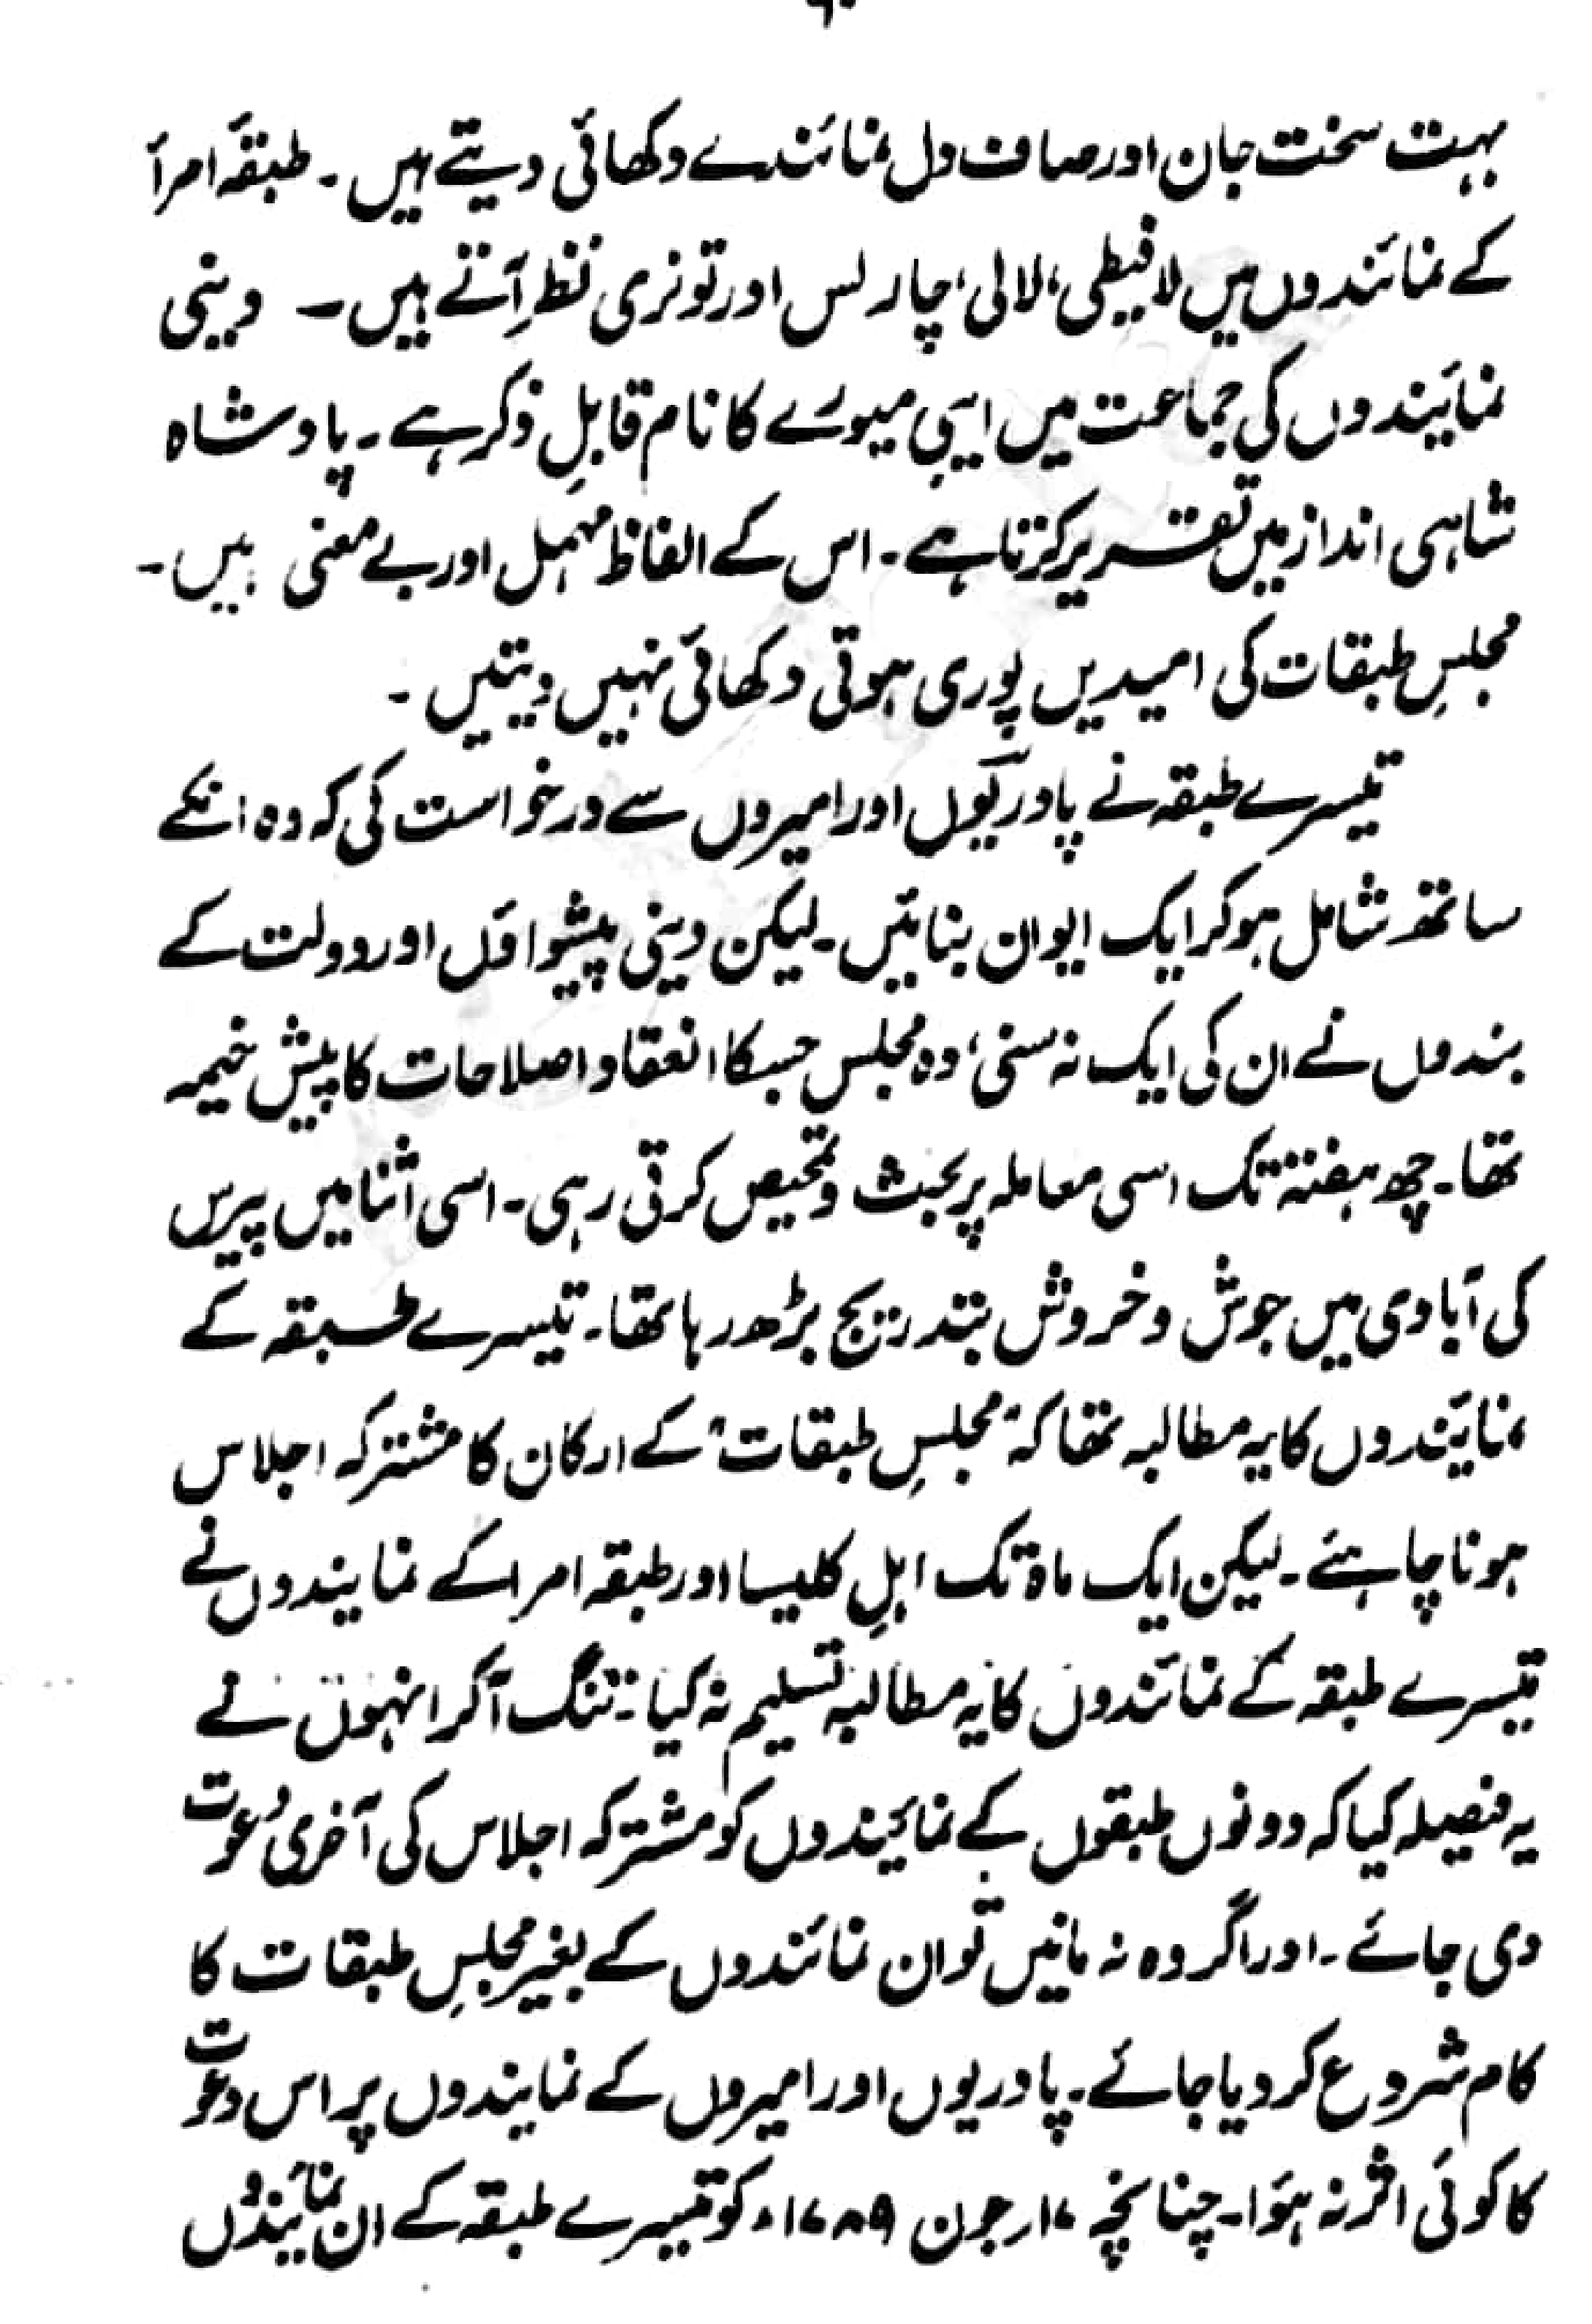 بہت سخت جان اور صاف دل نمائندے دکھائی دیتے ہیں۔ طبقہٴ امرأ
کے نمائندوں میں لافیطی، لالی، چارلس اور تونری نظر آتے ہیں۔ دینی
نمایٔندوں کی جماعت میں ایبی میورے کا نام قابلِ ذکر ہے۔ پادشاہ
شاہی انداز میں تقریر کرتا ہے۔ اس کے الفاظ مہمل اور بے معنی ہیں۔
مجلسِ طبقات کی امیدیں پوری ہوتی دکھائی نہیں دیتیں۔
تیسرے طبقہ نے پادریوں اور امیروں سے درخواست کی کہ وہ انکے
ساتھ شامل ہو کر ایک ایوان بنائیں۔ لیکن دینی پیشواؤں اور دولت کے
بندوں نے ان کی ایک نہ سنی، وہ مجلس جسکا انعقاد اصلاحات کا پیش خیمہ
تھا۔ چھ ہفتہ تک اسی معاملہ پر بحث و تمحیص کرتی رہی۔ اسی اثنا میں پیرس
کی آبادی میں جوش و خروش بتدریج بڑھ رہا تھا۔ تیسرے طبقہ کے
نمایٔندوں کا یہ مطالبہ تھا کہ "مجلسِ طبقات" کے ارکان کا مشترکہ اجلاس
ہونا چاہئے۔ لیکن ایک ماہ تک اہلِ کلیسا اور طبقہ امرا کے نمایندوں نے
تیسرے طبقہ کے نمائندوں کا یہ مطالبہ تسلیم نہ کیا۔ تنگ آکر انہوں نے
یہ فیصلہ کیا کہ دونوں طبقوں کے نمایٔندوں کو مشترکہ اجلاس کی آخری دعوت
دی جائے۔ اور اگر وہ نہ مانیں تو ان نمائندوں کے بغیر مجلسِ طبقات کا
کام شروع کر دیا جائے۔ پادریوں اور امیروں کے نمایندوں پر اس دعوت
کا کوئی اثر نہ ہؤا۔ چنانچہ ۱۷ر جون ۱۷۸۹ء کو تیسرے طبقہ کے ان نمایٔندوں